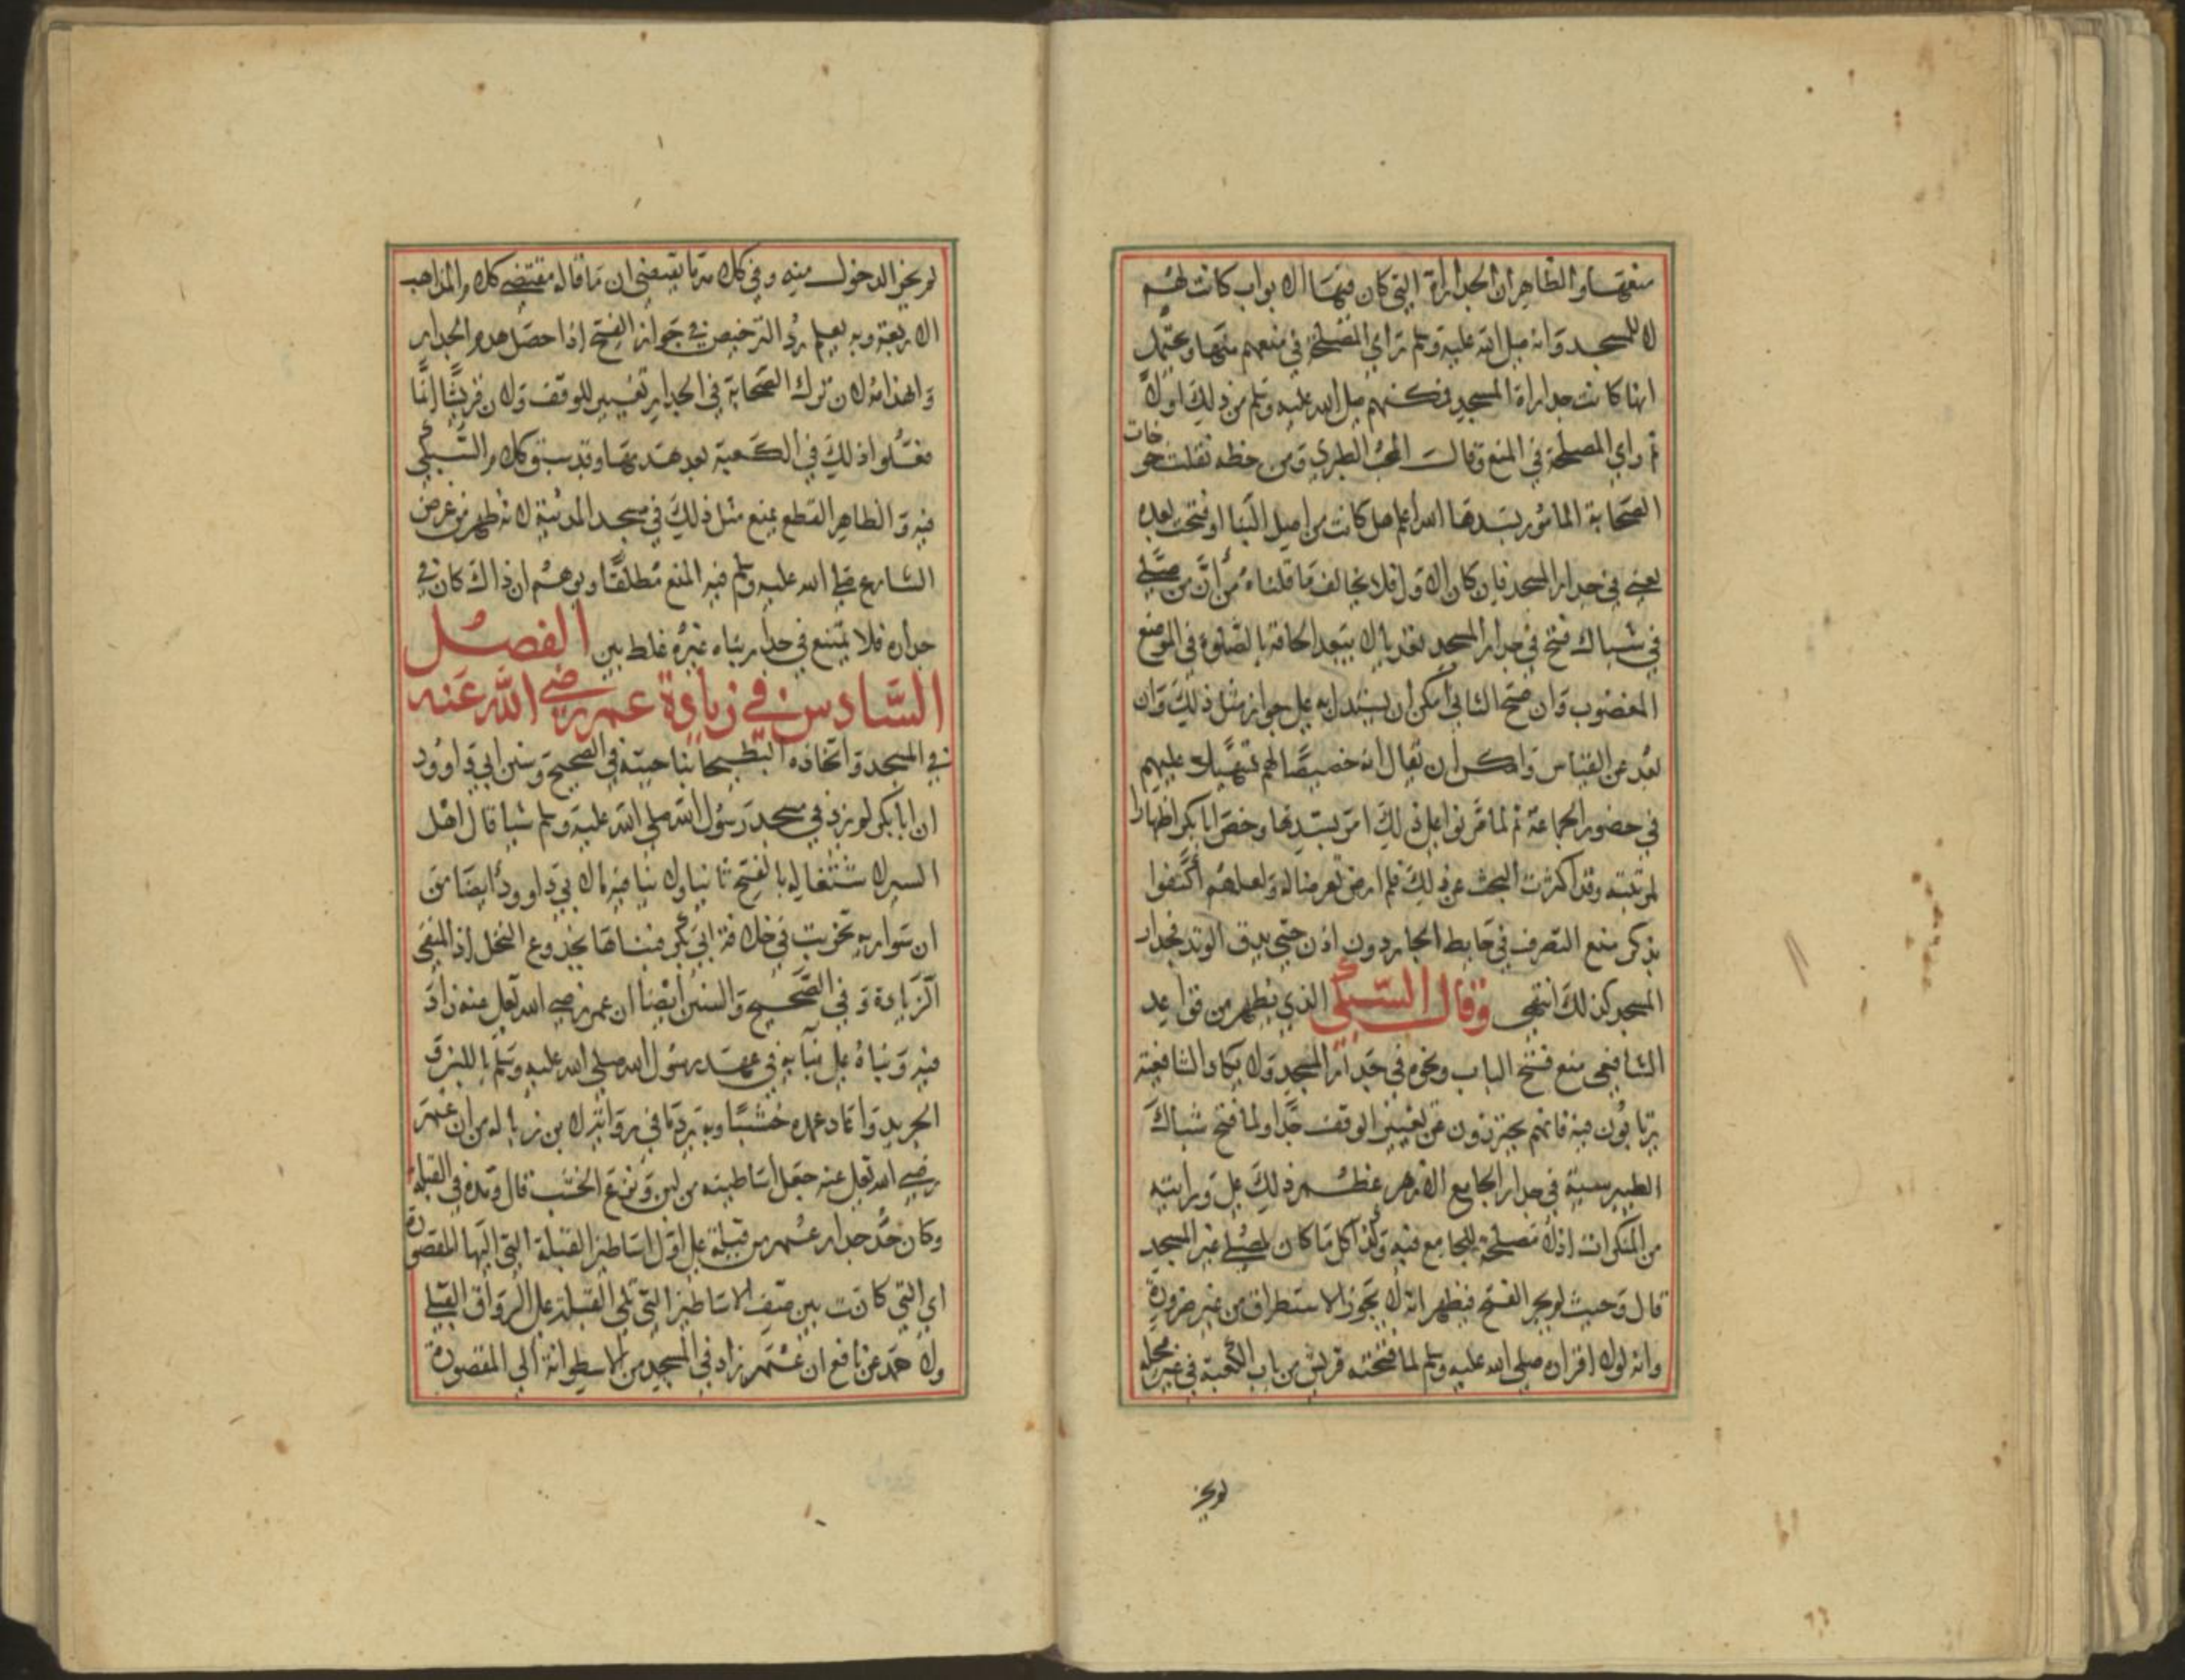 منعهما والظاهر ان الجدارات التي كان فيها الابواب كانت لهم
لا للمسجد وانه صلى الله عليه وسلم رأي المصلحة في منعهم منها ويحتمل
انها كانت جدارات المسجد فمكنهم صلى الله عليه وسلم من ذلك اولا
ثم رأي المصلحة في المنع وقال المحب الطبري ومن خطه نقلت خوخات
الصحابة المأمور بسدها الله اعلم هل كانت من اصل البنا او فتحت بعده
يعني في جدار المسجد فان كان الاول فلا يخالف ما قلناه من ان من صلى
في شباك فتح في جدار المسجد تعديا لا يبعد الحاقه بالصلوة في الموضع
المغصوب وان صح الثاني امكن ان يستدل به على جواز مثل ذلك وان
بعد عن القياس وامكن ان يقال انه خصيصا لهم تسهيلا عليهم
في حضور الجماعة ثم لما مرنوا على ذلك امر بسدها وخص ابا بكر اظهارا
لمرتبته وقد اكثرت البحث عن ذلك فلم ار من تعرض له ولعلهم اكتفوا
بذكر منع التصرف في حايط الجار دون اذن حتى بدق الوتد فجدار
المسجد كذلك انتهى وقال السبكي الذي يظهر من قواعد
الشافعي منع فتح الباب ونحوه في جدار المسجد ولا يكاد الشافعية
يرتابون فيه فانهم يحترزون عن تغيير الوقف جدا ولما فتح شباك
الطيبرسية في جدار الجامع الازهر عظم ذلك على ورايته
من المنكرات اذ لا مصلحة للجامع فيه وكذا كل ما كان لمصلى غير المسجد
قال وحيث لم يجز الفتح فيظهر انه لا يجوز الاستطراق من غير ضرورة
وانه لولا اقراره صلى الله عليه وسلم لما فتحته قريش من باب الكعبة في غير محله
لم يجز
لم يجز الدخول منه وفي كلامه ما يقتضي ان ما قاله مقتضى كلام المذاهب
الاربعة وبه يعلم رد الترخيص في جواز الفتح اذا حصل هدم الجدار
واهذامه لان ترك الصحابة في الجدار تغيير للوقف ولان قريشا انما
فعلوا ذلك في الكعبة بعد هدمها وقد سبق كلام السبكي
فيه والظاهر القطع بمنع مثل ذلك في مسجد المدينة لانه ظهر من غرض
الشارع صلى الله عليه وسلم فيه المنع مطلقا وتوهم ان ذاك كان في
جداره فلا يمتنع في جدار بناه غيره غلط بين الفصل
السادس في زيادة عمر رضي الله عنه
في المسجد واتخاذه البطيحا بناحيته في الصحيح وسنن ابي داوود
ان ابا بكر لم يزد في مسجد رسول الله صلى الله عليه وسلم شيا قال اهل
السير لاشتغاله بالفتح ثانيا ولا ينافيه ما لابي داوود ايضا من
ان سواريه نخرت في خلافة ابي بكر فبناها بجذوع النخل اذ المنفي
الزيادة وفي الصحيح والسنن ايضا ان عمر رضي الله تعالى عنه زاد
فيه وبناه على بنايه في عهد رسول الله صلى الله عليه وسلم باللبن و
الجريد واعاد عمده خشبا وبه يرد ما في رواية لابن زبالة من ان عمر
رضي الله تعالى عنه جعل اساطينه من لبن ونزع الخشب قال ومده في القبلة
وكان حد جدار عمر من قبلة على اول اساطين القبلة التي اليها المقصورة
اي التي كانت بين صف الاساطين التي تلي القبلة على الرواق القبلي
ولاحمد عن نافع ان عمر زاد في المسجد من الاسطوانة الي المقصورة